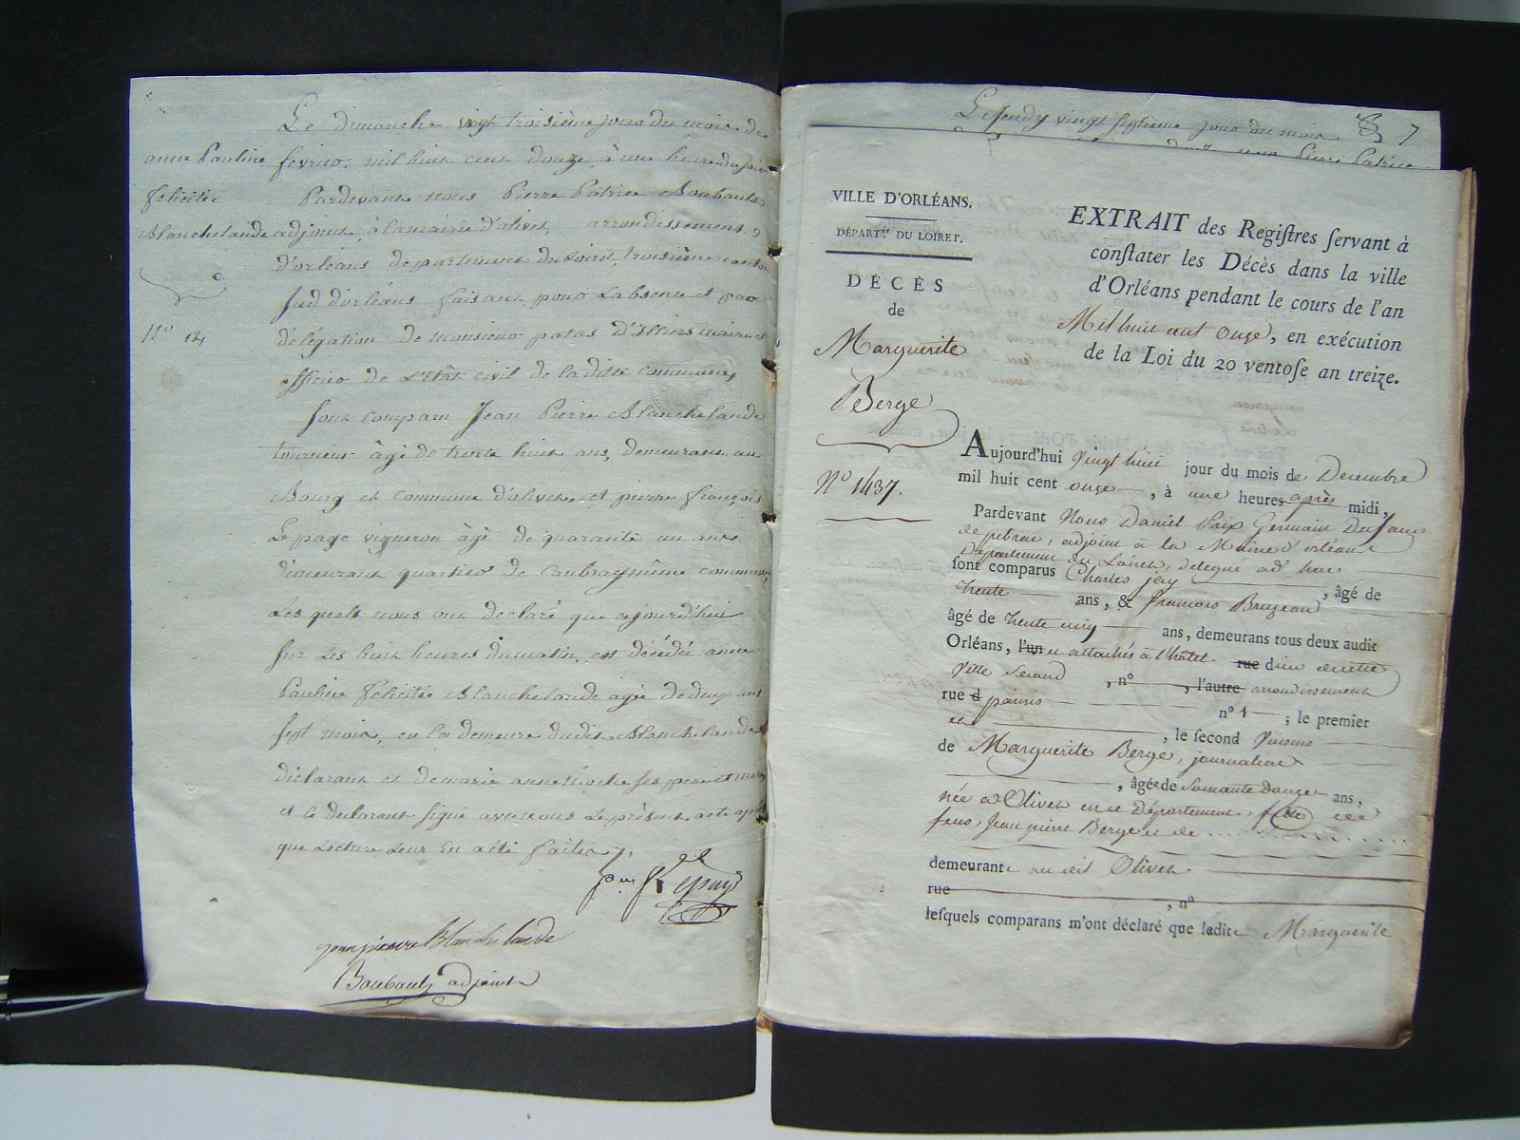 anne Pauline
félicitée
Blanchelande
N.o 14
Le dimanche vingt troisième jour du mois de
fevrier mil huit cent douze à une heure du soir
Pardevant nous Pierre Patrice Boubault
adjoint à la mairie d'olivet, arrondissement
d'orléans departement du Loiret, troisième canton
sud d'orléans faisant pour l'absence et par
délégation de monsieur patas D'Illiers maire et
officier de L'état civil de la ditte commune,
sont comparu Jean Pierre Blanchelande
tourneur âgé de trente huit ans, demeurant au
Bourg et commune d'olivet, et pierre françois
Le page vigneron âgé de quarante un ans
demeurant quartier de Caubray même commune,
Les quels nous ont declaré que aujourd'hui
sur les huit heures du matin, est décédée anne
Pauline félicitée Blanchelande agée de deux ans
sept mois, en la demeure dudit Blanchelande
déclarant et de marie anne ses pere et mere
et le declarant signé avec nous le présent acte après
que Lecture leur en a été faite.
p.re f Lepage
jean pierre Blanchelande
Boubault adjoint
Le jeudy vingt septieme jour du mois
8 7
Pierre Patrice
VILLE D'ORLÉANS.
DÉPART.t DU LOIRET.
DÉCÈS
de
Marguerite
Berge
N.o 1437.
EXTRAIT des Regiſtres ſervant à
conſtater les Décès dans la ville
d'Orléans pendant le cours de l'an
Mil huit cent onze, en exécution
de la Loi du 20 ventoſe an treize.
Aujourd'hui Vingt huit jour du mois de Decembre
mil huit cent onze, à une heures après midi,
Pardevant Nous Daniel Paix Germain Dufaur
de pibrac, adjoint à la Mairie d'orléans
Département du Loiret, delegué ad hoc
ſont comparus Charles jery, âgé de
trente ans, & francois Bruzeau
âgé de trente cinq ans, demeurans tous deux audit
Orléans, l'un et attachés à l'hôtel rue dieu de cette
ville Second, n°, l'autre arrondissement
rue d paris n° 1 ; le premier
, le ſecond Voisins
de Marguerite Berge, journaliere
, âgée de Soixante douze ans,
née à Olivet en ce Département, fille de
feus Jean pierre Berge et de
demeurante au dit Olivet
rue, n°
leſquels comparans m'ont déclaré que ladite Marguerite